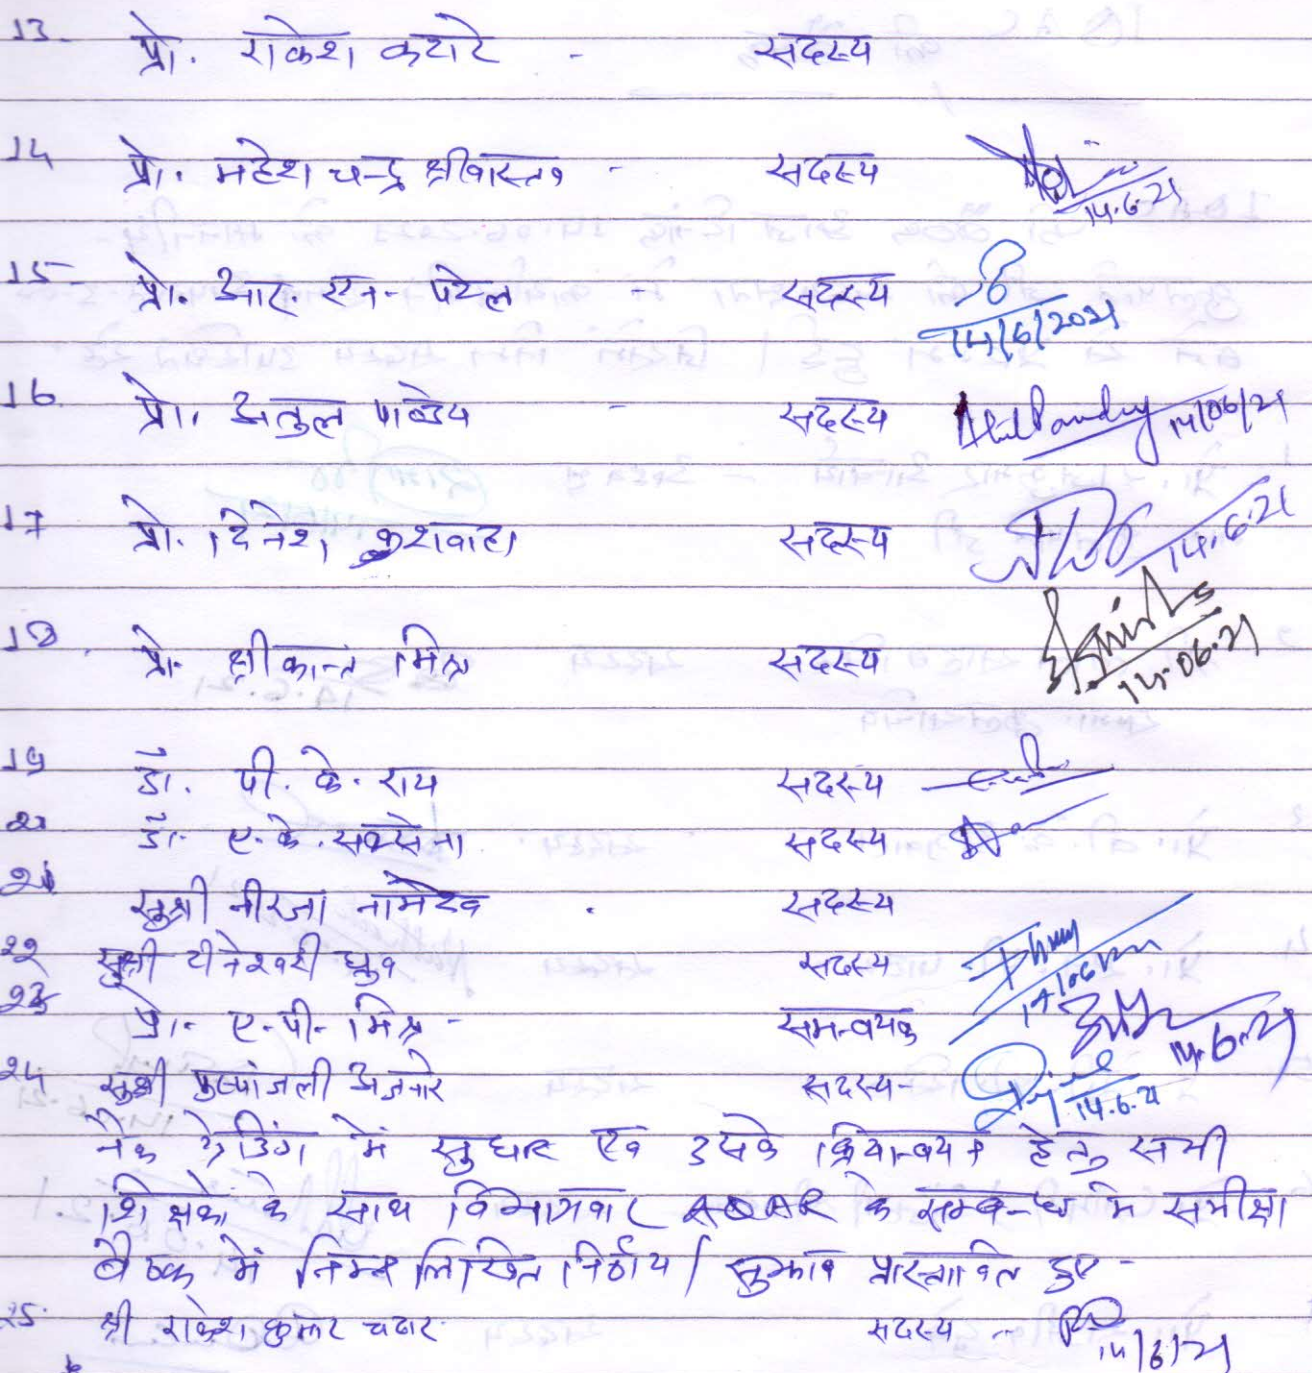 13. प्रो. राकेश कटारे - सदस्य
14 प्रो. महेश चन्द्र श्रीवास्तव - सदस्य 14.6.21
15 प्रो. आर एन. पटेल - सदस्य 14/6/2021
16. प्रो. अतुल पाण्डेय - सदस्य Atul Pandey 14/06/21
17 प्रो. दिनेश कुशवाह सदस्य 14.6.21
18. प्रो. श्रीकान्त मिश्र सदस्य 14.06.21
19 डॉ. पी. के. राय सदस्य
20 डॉ. ए. के. सक्सेना सदस्य
21 सुश्री नीरजा नामदेव . सदस्य
22 सुश्री टीनेश्वरी ध्रुव सदस्य
23 प्रो. ए. पी. मिश्र - समन्वयक 14.6.21
24 सुश्री पुष्पांजली अजनारे सदस्य - 14.6.21
नैक ग्रेडिंग में सुधार एवं उसके क्रियान्वयन हेतु सभी
शिक्षकों के साथ विभागवार के सम्बन्ध में समीक्षा
बैठक में निम्न लिखित निर्णय / सुझाव प्रस्तावित हुए -
25. श्री राकेश कुमार चढार सदस्य - 14/6/21